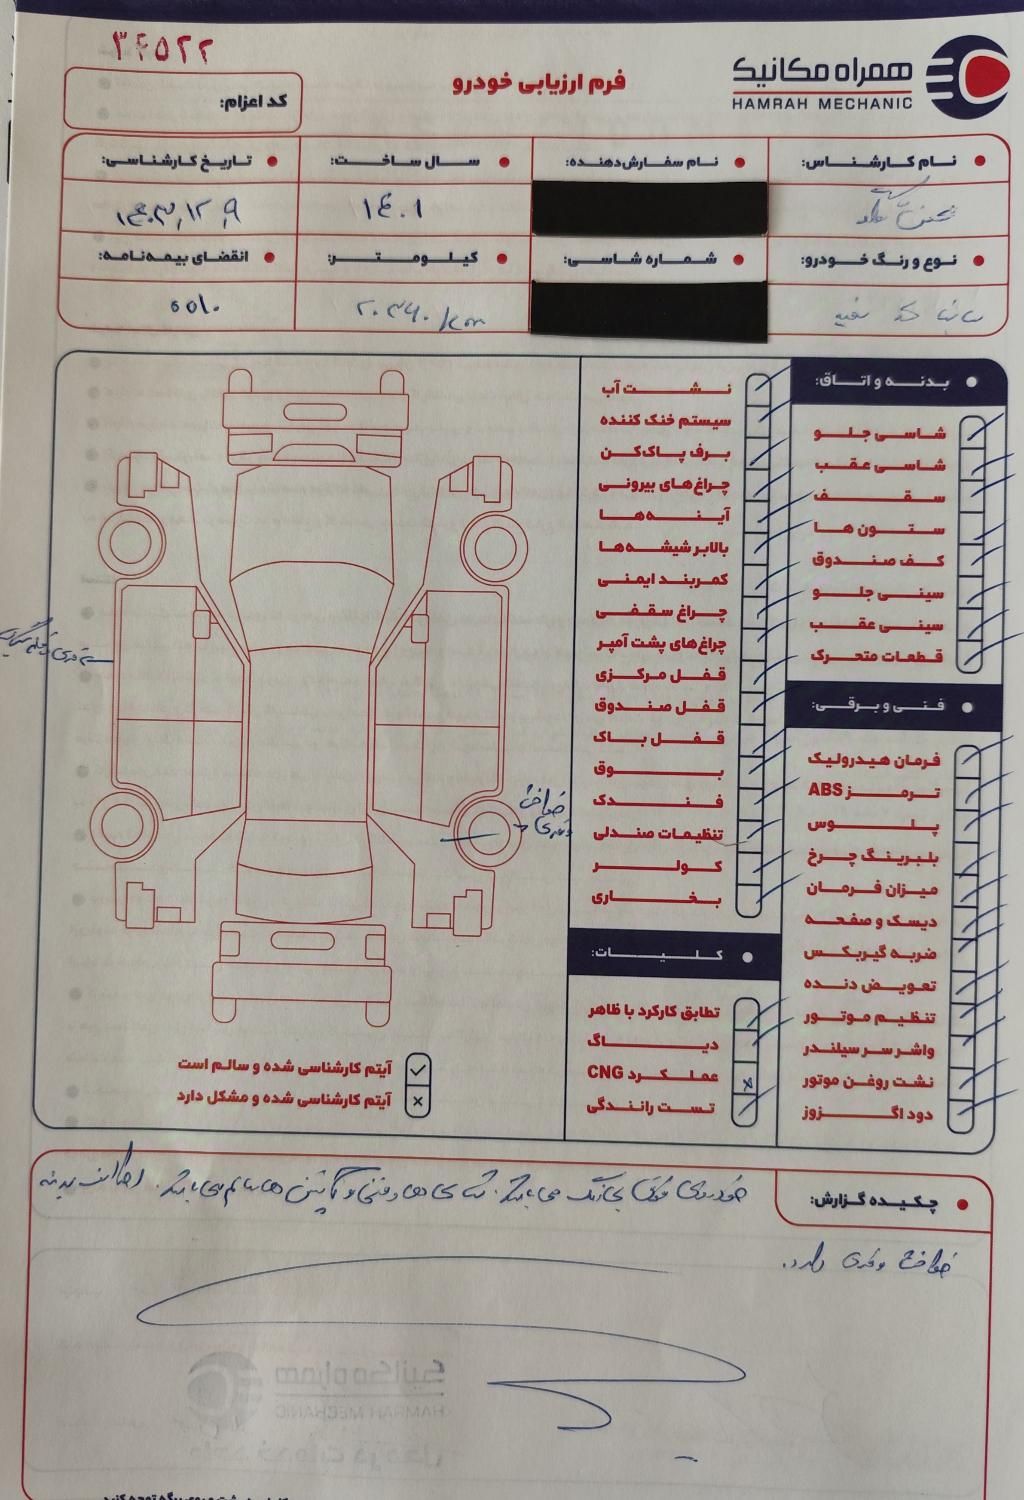 ۳۴۵۲۲
همراه مکانیک
HAMRAH MECHANIC
فرم ارزیابی خودرو
کد اعزام:
نام کارشناس:
نام سفارش‌دهنده:
سال ساخت:
تاریخ کارشناسی:
۱۴۰۱
۱۴۰۳,۱۲,۹
نوع و رنگ خودرو:
شماره شاسی:
کیلومتر:
انقضای بیمه‌نامه:
سفید
۲۰۳۶۰/km
بدنه و اتاق:
شاسی جلو
شاسی عقب
سقف
ستون ها
کف صندوق
سینی جلو
سینی عقب
قطعات متحرک
فنی و برقی:
فرمان هیدرولیک
ترمز ABS
پلوس
بلبرینگ چرخ
میزان فرمان
دیسک و صفحه
ضربه گیربکس
تعویض دنده
تنظیم موتور
واشر سر سیلندر
نشت روغن موتور
دود اگزوز
نشت آب
سیستم خنک کننده
برف پاک‌کن
چراغ‌های بیرونی
آینه‌ها
بالابر شیشه‌ها
کمربند ایمنی
چراغ سقفی
چراغ‌های پشت آمپر
قفل مرکزی
قفل صندوق
قفل باک
بوق
فندک
تنظیمات صندلی
کولر
بخاری
کلیات:
تطابق کارکرد با ظاهر
دیاگ
عملکرد CNG
تست رانندگی
آیتم کارشناسی شده و سالم است
آیتم کارشناسی شده و مشکل دارد
چکیده گزارش:
خودروی فوق بی‌رنگ می‌باشد. شاسی ها و فنی و آپشن ها سالم می‌باشد. اطراف بدنه
خط و خش دارد.